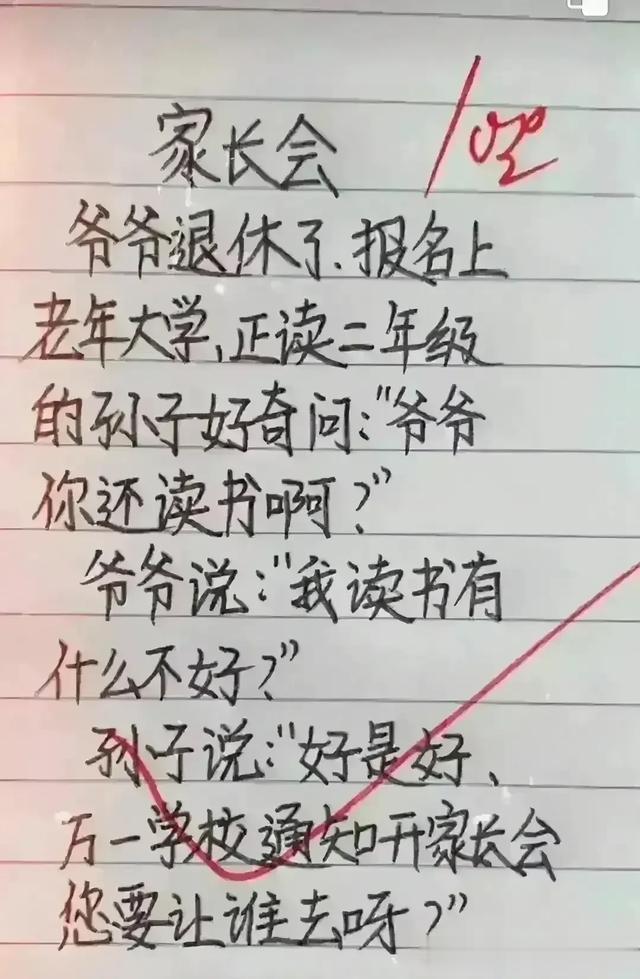 家长会
爷爷退休了、报名上
老年大学,正读二年级
的孙子好奇问:"爷爷
你还读书啊?"
爷爷说:"我读书有
什么不好?"
孙子说:"好是好、
万一学校通知开家长会
您要让谁去呀?"